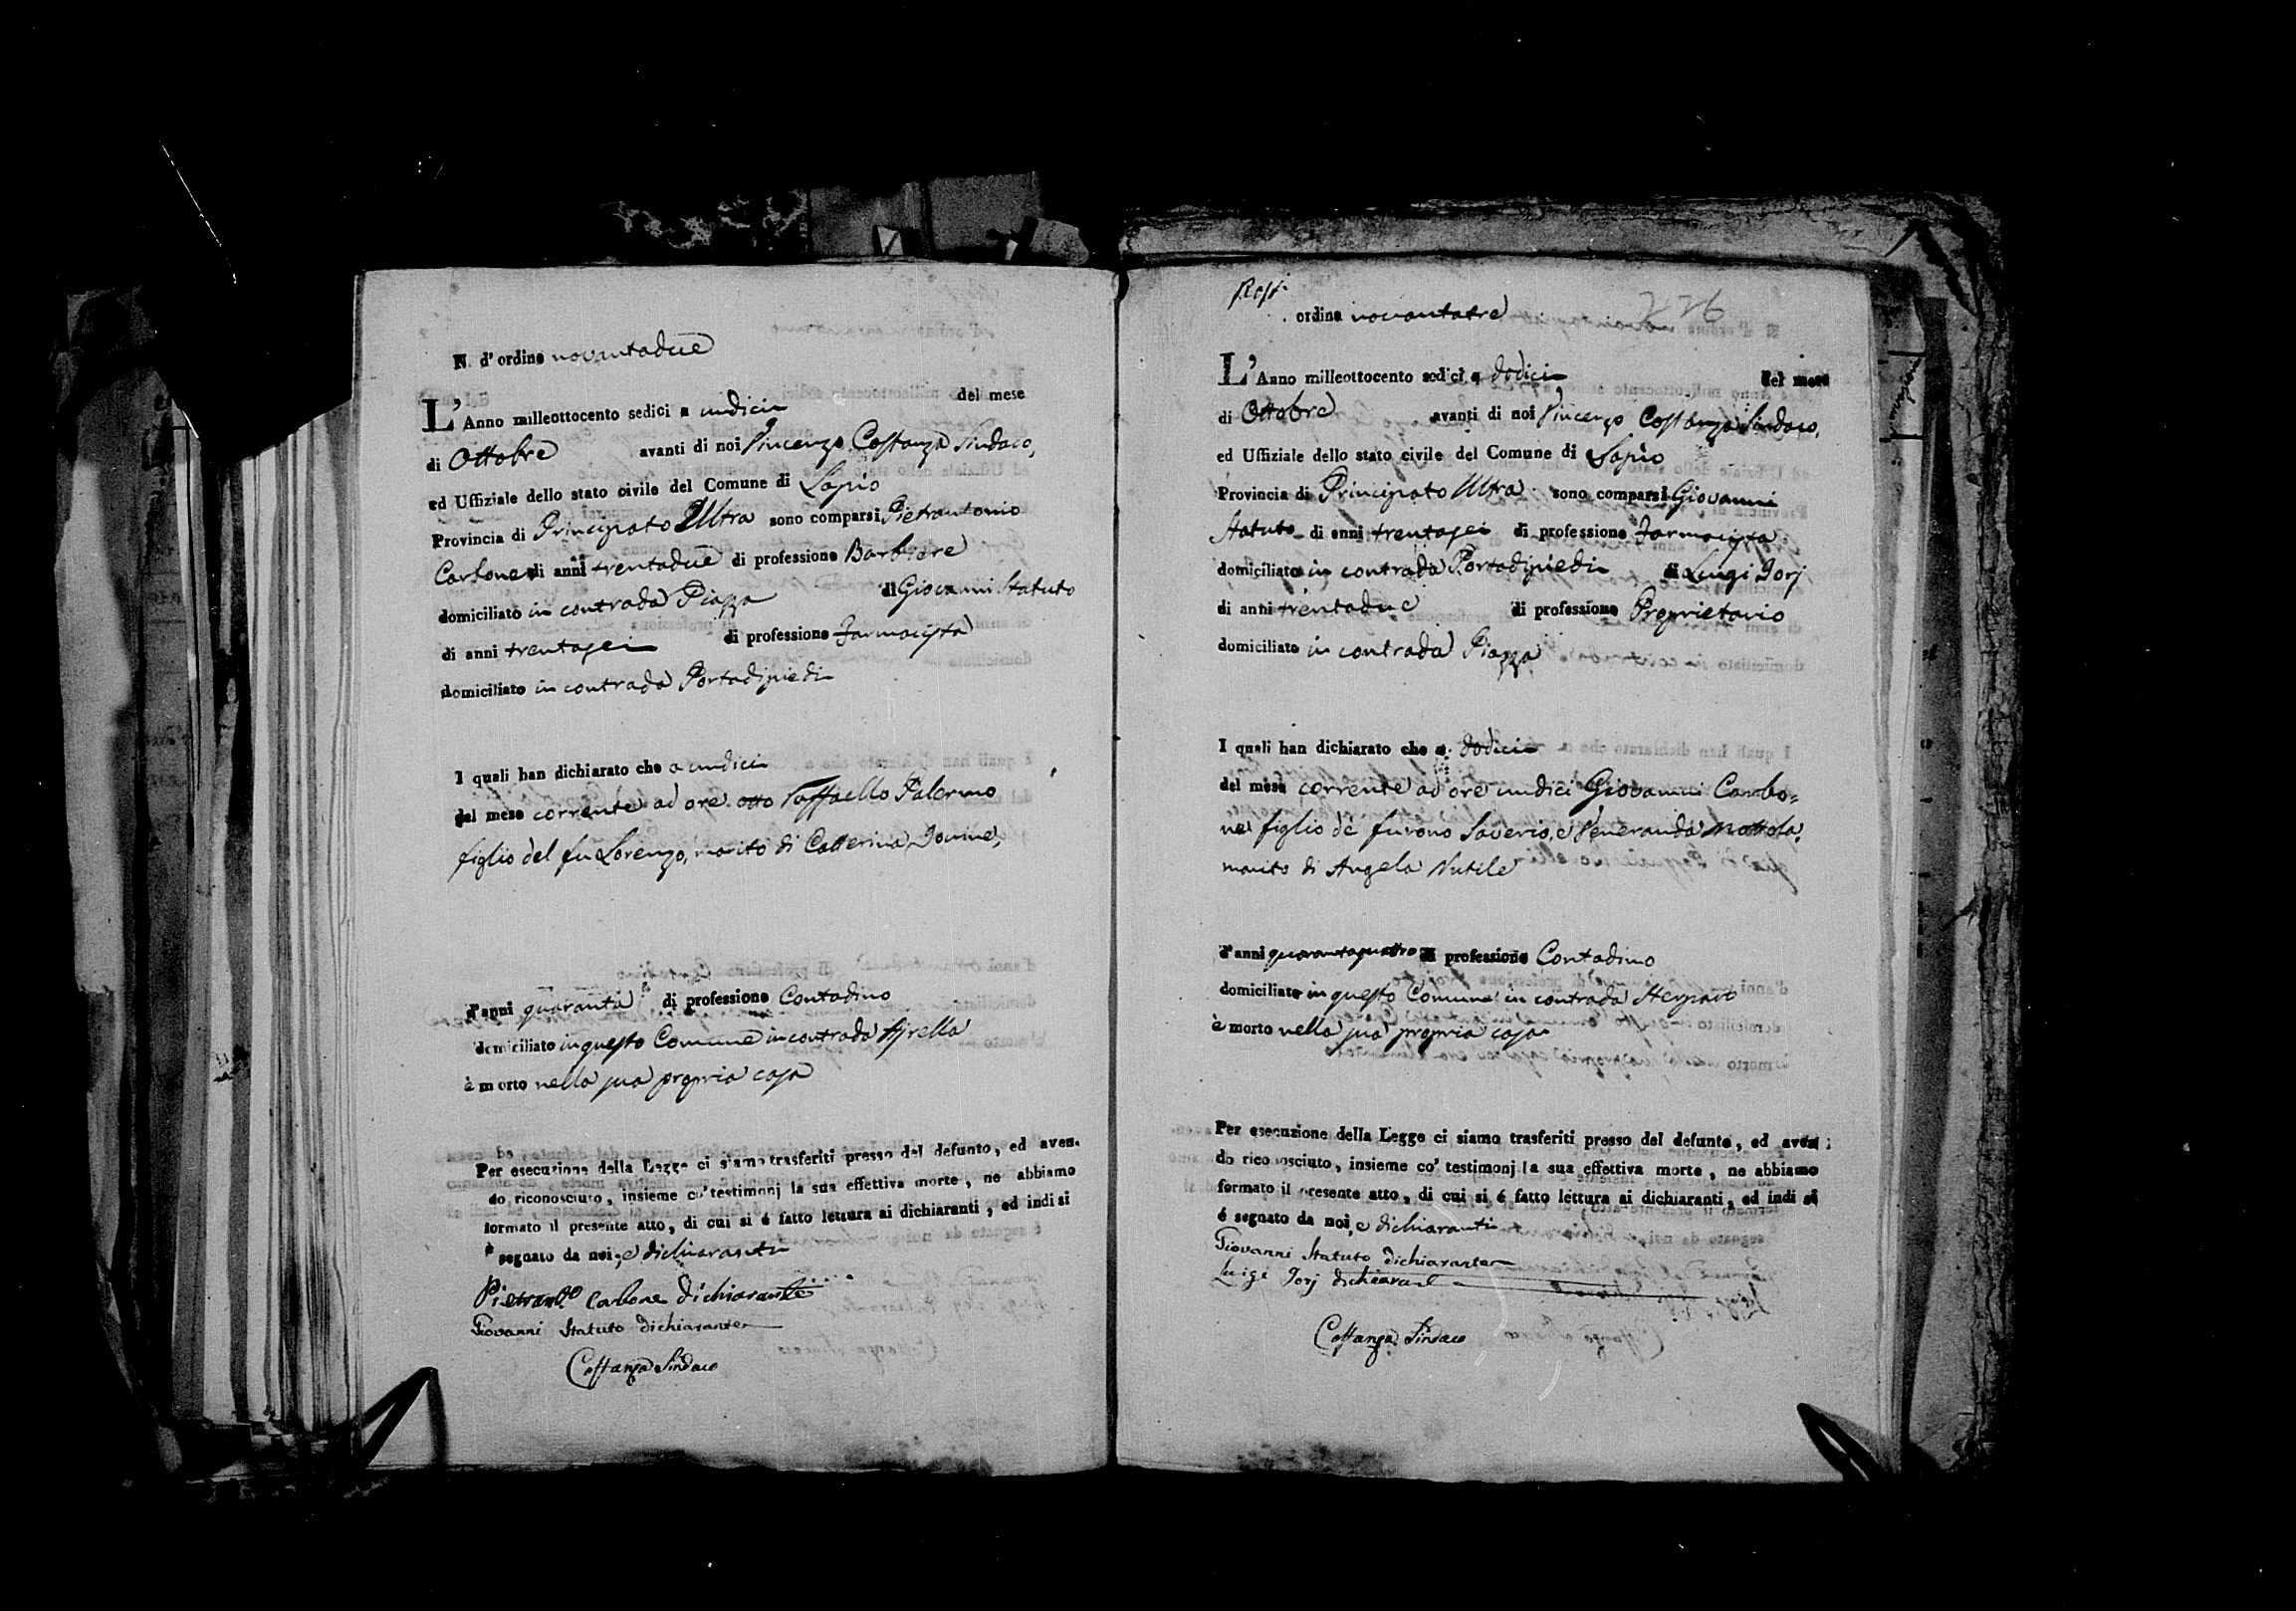 N. d'ordine novantadue
L'Anno milleottocento sedici a undici del mese
di Ottobre avanti di noi Vincenzo Costanza Sindaco,
ed Uffiziale dello stato civile del Comune di Lapio
Provincia di Principato Ultra sono comparsi Pietrantonio
Carbone di anni trentadue di professione Barbiere
domiciliato in contrada Piazza di Giovanni Statuto
di anni trentasei di professione Farmacista
domiciliato in contrada Portadipiedi
I quali han dichiarato che a undici
del mese corrente ad ore otto Raffaello Palermo
figlio del fu Lorenzo, marito di Catterina Iovine,
d'anni quaranta di professione Contadino
domiciliato in questo Comune in contrada
è morto nella sua propria casa
Per esecuzione della Legge ci siamo trasferiti presso del defunto, ed aven-
do riconosciuto, insieme co' testimonj la sua effettiva morte, ne abbiamo
formato il presente atto, di cui si é fatto lettura ai dichiaranti, ed indi si
è segnato da noi, e dichiaranti
Pietrant.o Carbone dichiarante
Giovanni Statuto dichiarante
Costanza Sindaco
ordine novantatre
L'Anno milleottocento sedici a dodici del mese
di Ottobre avanti di noi Vincenzo Costanza Sindaco,
ed Uffiziale dello stato civile del Comune di Lapio
Provincia di Principato Ultra sono comparsi Giovanni
Statuto di anni trentasei di professione Farmacista
domiciliato in contrada Portadipiedi di Luigi Iorj
di anni trentadue di professione Proprietario
domiciliato in contrada Piazza
I quali han dichiarato che a dodici
del mese corrente ad ore undici Giovanni Carbo=
ne figlio de furono Saverio, e Veneranda Mottola,
marito di Angela Nutile
d'anni quarantaquattro di professione Contadino
domiciliato in questo Comune in contrada
è morto nella sua propria casa
Per esecuzione della Legge ci siamo trasferiti presso del defunto, ed aven
do riconosciuto, insieme co' testimonj la sua effettiva morte, ne abbiamo
formato il presente atto, di cui si é fatto lettura ai dichiaranti, ed indi si
é segnato da noi, e dichiaranti
Giovanni Statuto dichiarante
Luigi Iorj dichiarant
Costanza Sindaco